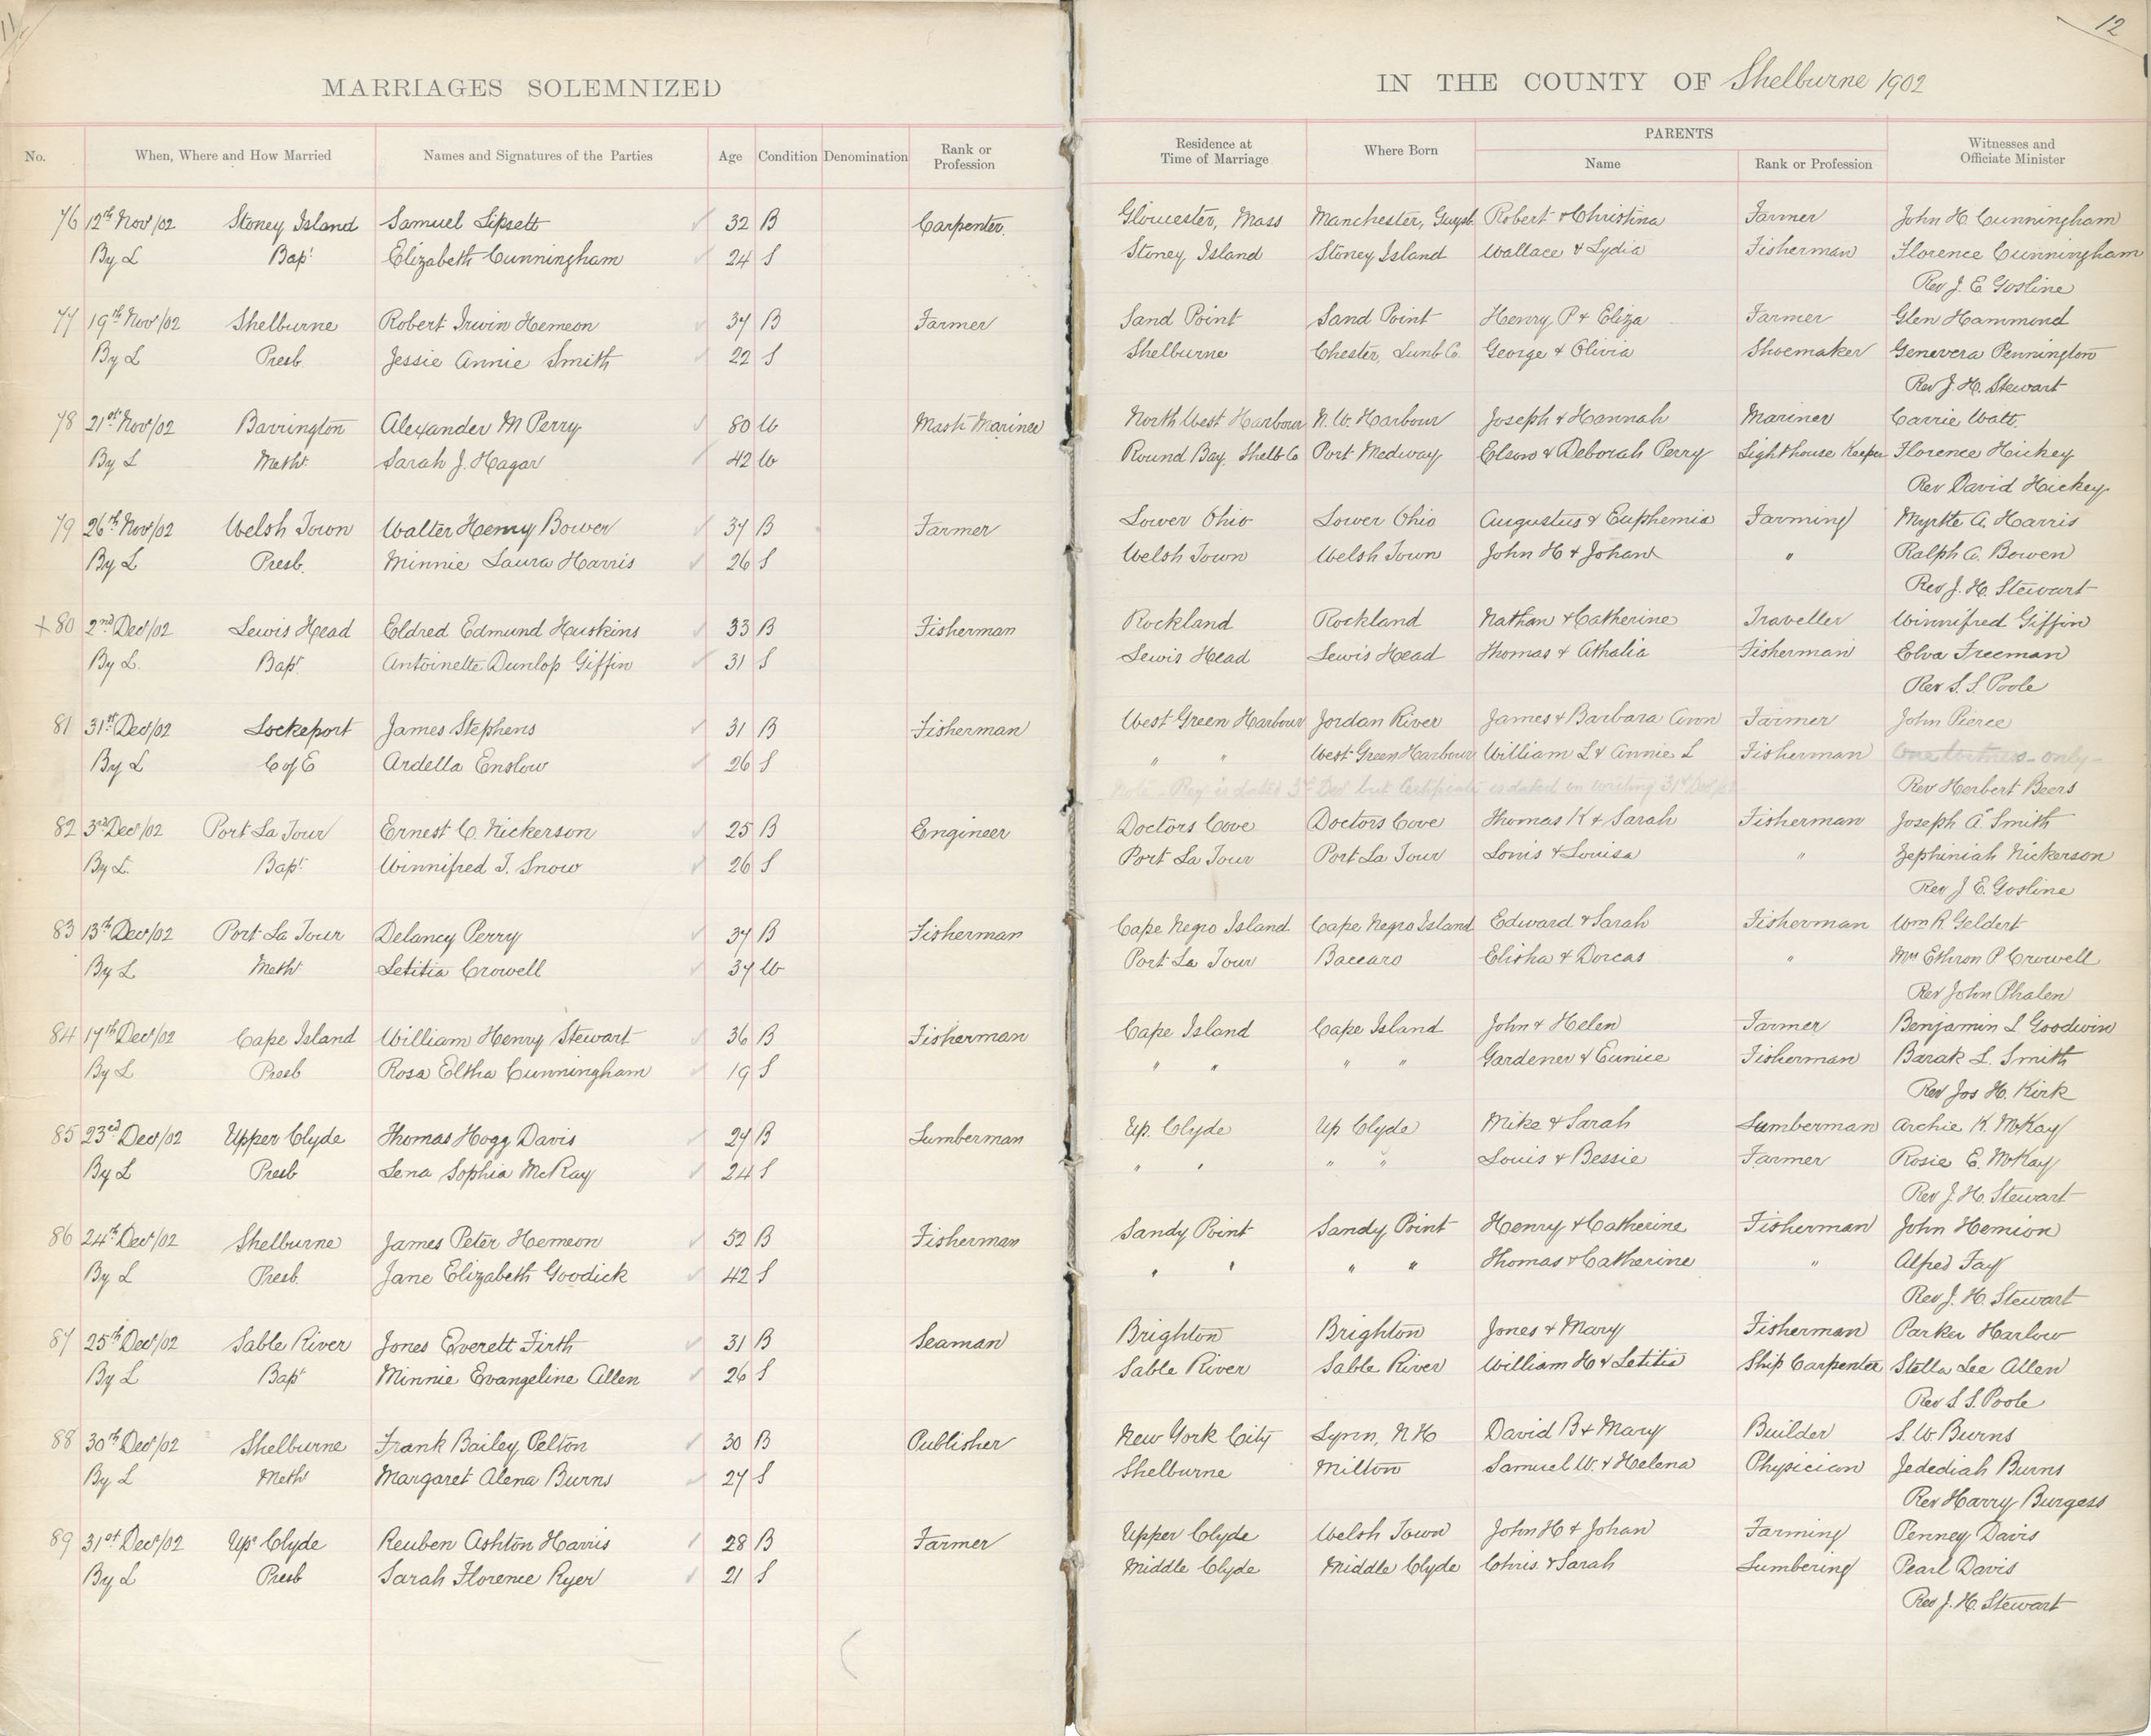 11
12
MARRIAGES SOLEMNIZED IN THE COUNTY OF Shelburne 1902
No. When, Where and How Married Names and Signatures of the Parties Age Condition Denomination Rank or Profession Residence at Time of Marriage Where Born PARENTS Name Rank or Profession Witnesses and Officiate Minister
76 12th Nov/02 Stoney Island Samuel Lipsett 32 B Carpenter Gloucester, Mass Manchester, Guysb. Robert & Christina Farmer John H. Cunningham
By L Bapt Elizabeth Cunningham 24 S Stoney Island Stoney Island Wallace & Lydia Fisherman Florence Cunningham
Rev J. E. Gosline
77 19th Nov/02 Shelburne Robert Irwin Hemeon 37 B Farmer Sand Point Sand Point Henry P & Eliza Farmer Glen Hammond
By L Presb. Jessie Annie Smith 22 S Shelburne Chester, Lunb Co. George & Olivia Shoemaker Genevera Pennington
Rev J. H. Stewart
78 21st Nov/02 Barrington Alexander M Perry 80 W Mastr Mariner North West Harbour N. W. Harbour Joseph & Hannah Mariner Carrie Watt
By L Metht Sarah J. Hagar 42 W Round Bay, Shelb Co Port Medway & Deborah Perry Lighthouse Keeper Florence Hickey
Rev David Hickey
79 26th Nov/02 Welsh Town Walter Henry Bower 37 B Farmer Lower Ohio Lower Ohio Augustus & Euphemia Farming Myrtte A. Harris
By L Presb. Minnie Laura Harris 26 S Welsh Town Welsh Town John H & Johan " Ralph A. Bowen
Rev J. H. Stewart
+80 2nd Decr/02 Lewis Head Eldred Edmund Huskins 33 B Fisherman Rockland Rockland Nathan & Catherine Traveller Winnifred Giffin
By L. Bapt. Antoinette Dunlop Giffin 31 S Lewis Head Lewis Head Thomas & Athalia Fisherman Elva Freeman
Rev S. S. Poole
81 31st Decr/02 Lockeport James Stephens 31 B Fisherman West Green Harbour Jordan River James & Barbara Ann Farmer John Pierce
By L C of E Ardella Enslow 26 S " " West Green Harbour William L & Annie L Fisherman One Witness only
Note - Reg is dated 3rd Dec but Certificate is dated in writing 31st Dec/02 Rev Herbert Beers
82 3rd Decr/02 Port La Tour Ernest C. Nickerson 25 B Engineer Doctors Cove Doctors Cove Thomas K & Sarah Fisherman Joseph A. Smith
By L. Bapt Winnifred T. Snow 26 S Port La Tour Port La Tour Louis & Louisa " Zephiniah Nickerson
Rev J E. Gosline
83 13th Decr/02 Port La Tour Delancy Perry 37 B Fisherman Cape Negro Island Cape Negro Island Edward & Sarah Fisherman Wm R Geldert
By L Metht Letitia Crowell 37 W Port La Tour Baccaro Elisha & Dorcas " Mrs P Crowell
Rev John Phalen
84 17th Decr/02 Cape Island William Henry Stewart 36 B Fisherman Cape Island Cape Island John & Helen Farmer Benjamin L Goodwin
By L Presb Rosa Eltha Cunningham 19 S " " " " Gardener & Eunice Fisherman Barak L. Smith
Rev Jos H. Kirk
85 23rd Decr/02 Upper Clyde Thomas Hogg Davis 27 B Lumberman Up. Clyde Up Clyde Mike & Sarah Lumberman Archie K. McKay
By L Presb Lena Sophia McKay 24 S " " " " Louis & Bessie Farmer Rosie E. McKay
Rev J. H. Stewart
86 24th Decr/02 Shelburne James Peter Hemeon 52 B Fisherman Sandy Point Sandy Point Henry & Catherine Fisherman John Hemion
By L Presb. Jane Elizabeth Goodick 42 S " " " " Thomas & Catherine " Alfred Fay
Rev J. H. Stewart
87 25th Decr/02 Sable River Jones Everett Firth 31 B Seaman Brighton Brighton Jones & Mary Fisherman Parker Harlow
By L Bapt Minnie Evangeline Allen 26 S Sable River Sable River William H & Letitia Ship Carpenter Stella Lee Allen
Rev S. S. Poole
88 30th Decr/02 Shelburne Frank Bailey Pelton 30 B Publisher New York City Lynn, N H David B & Mary Builder S. W Burns
By L Metht Margaret Alena Burns 27 S Shelburne Milton Samuel W. & Helena Physician Jedediah Burns
Rev Harry Burgess
89 31st Decr/02 Upr Clyde Reuben Ashton Harris 28 B Farmer Upper Clyde Welsh Town John H & Johan Farming Penney Davis
By L Presb Sarah Florence Ryer 21 S Middle Clyde Middle Clyde Chris. & Sarah Lumbering Pearl Davis
Rev J. H. Stewart